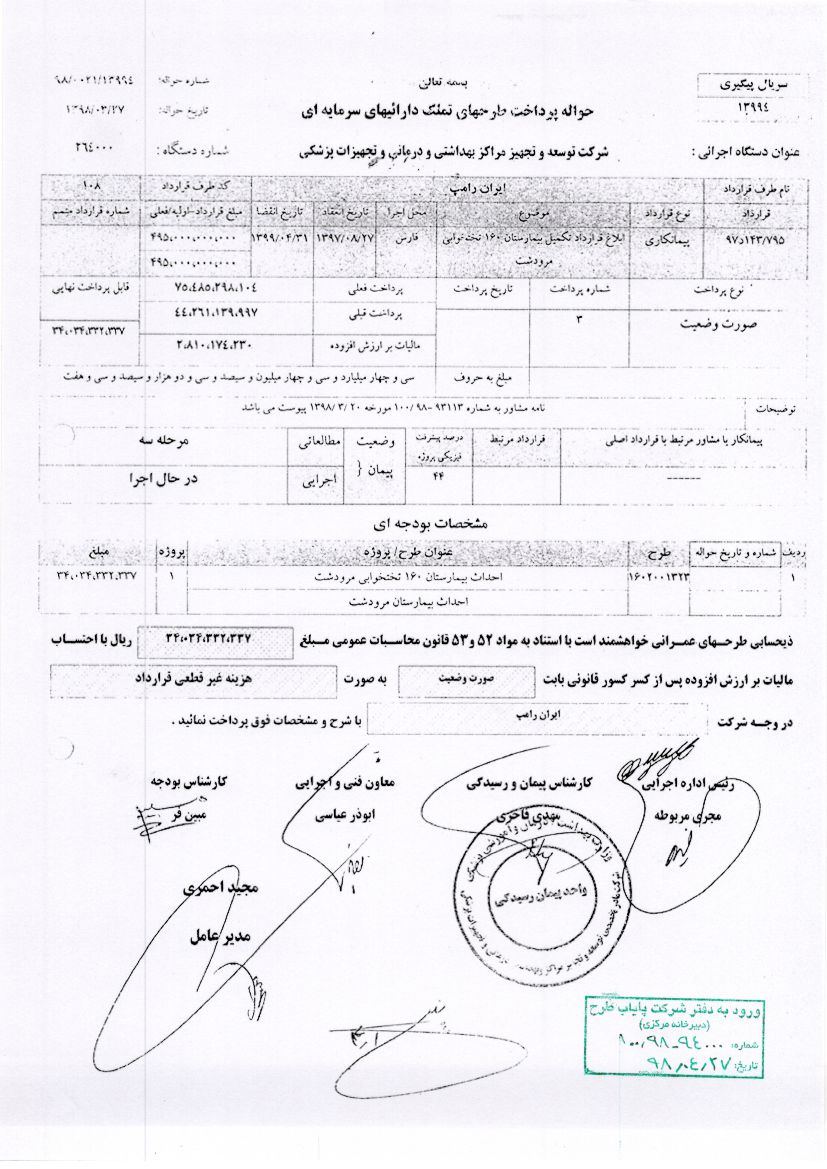 سریال پیگیری
۱۳۹۹۴
بسمه تعالی
حواله پرداخت طرحهای تملک دارائیهای سرمایه ای
شماره حواله: ۹۸/۰۰۲۱/۱۳۹۹٤
تاریخ حواله: ۱۳۹۸/۰۳/۲۷
عنوان دستگاه اجرائی : شرکت توسعه و تجهیز مراکز بهداشتی و درمانی و تجهیزات پزشکی شماره دستگاه : ۲٦٤۰۰۰
نام طرف قرارداد ایران رامپ کد طرف قرارداد ۱۰۸
قرارداد نوع قرارداد موضوع محل اجرا تاریخ انعقاد تاریخ انقضا مبلغ قرارداد-اولیه/فعلی شماره قرارداد متمم
۹۷د۱۴۳/۷۹۵ پیمانکاری ابلاغ قرارداد تکمیل بیمارستان ۱۶۰ تختخوابی فارس ۱۳۹۷/۰۸/۲۷ ۱۳۹۹/۰۴/۳۱ ۴۹۵,۰۰۰,۰۰۰,۰۰۰
مرودشت ۴۹۵,۰۰۰,۰۰۰,۰۰۰
نوع پرداخت شماره پرداخت تاریخ پرداخت پرداخت فعلی ۷۵,۴۸۵,۲۹۸,۱۰۴ قابل پرداخت نهایی
صورت وضعیت ۳ پرداخت قبلی ۴۴,۲۶۱,۱۳۹,۹۹۷
مالیات بر ارزش افزوده ۲,۸۱۰,۱۷۴,۲۳۰ ۳۴,۰۳۴,۳۳۲,۳۳۷
مبلغ به حروف سی و چهار میلیارد و سی و چهار میلیون و سیصد و سی و دو هزار و سیصد و سی و هفت
توضیحات نامه مشاور به شماره ۹۳۱۱۳-۱۰۰/۹۸ مورخه ۲۰ /۳ /۱۳۹۸ پیوست می باشد
پیمانکار یا مشاور مرتبط با قرارداد اصلی قرارداد مرتبط درصد پیشرفت فیزیکی پروژه وضعیت پیمان { مطالعاتی مرحله سه
------ ۴۴ اجرایی در حال اجرا
مشخصات بودجه ای
ردیف شماره و تاریخ حواله طرح عنوان طرح/ پروژه پروژه مبلغ
۱ ۱۶۰۲۰۰۱۳۲۳ احداث بیمارستان ۱۶۰ تختخوابی مرودشت ۱ ۳۴,۰۳۴,۳۳۲,۳۳۷
احداث بیمارستان مرودشت
ذیحسابی طرحهای عمرانی خواهشمند است با استناد به مواد ۵۲ و ۵۳ قانون محاسبات عمومی مبلغ ۳۴,۰۳۴,۳۳۲,۳۳۷ ریال با احتساب
مالیات بر ارزش افزوده پس از کسر کسور قانونی بابت صورت وضعیت به صورت هزینه غیر قطعی قرارداد
در وجه شرکت ایران رامپ با شرح و مشخصات فوق پرداخت نمائید .
رئیس اداره اجرایی کارشناس پیمان و رسیدگی معاون فنی و اجرایی کارشناس بودجه
مجری مربوطه مهدی فاخری ابوذر عباسی مبین فر
واحد پیمان رسیدگی
مجید احمری
مدیر عامل
ورود به دفتر شرکت پایاب طرح
(دبیرخانه مرکزی)
شماره: ۱۰۰٫۹۸-۹٤۰۰۰
تاریخ: ۹۸٫۰٤٫۲۷